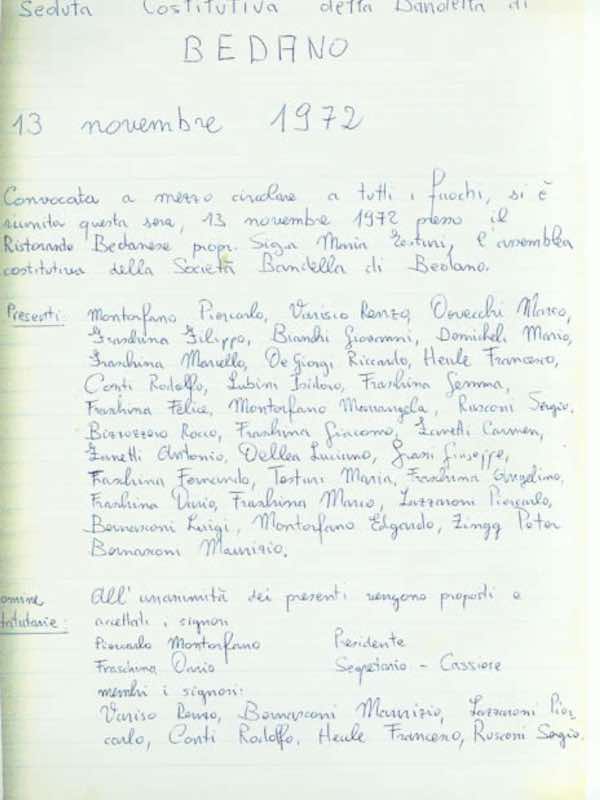 Seduta Costitutiva della Bandella di
BEDANO
13 novembre 1972
Convocata a mezzo circolare a tutti i fuochi, si è
riunita questa sera, 13 novembre 1972 presso il
Ristorante Bedanese propr. Sig.a Maria Testuri, l'assemblea
costitutiva della Società Bandella di Bedano.
Presenti: Montorfano Piercarlo, Varisco Renzo, Marco,
Fraschina Filippo, Bianchi Giovanni, Domicheli Mario,
Fraschina Marcello, De Giorgi Riccardo, Heule Francesco,
Conti Rodolfo, Lubini Isidoro, Fraschina Gemma,
Fraschina Felice, Montorfano Mariangela, Rusconi Sergio,
Bizzozzero Rocco, Fraschina Giacomo, Zanetti Carmen,
Zanetti Antonio, Dellea Luciano, Grassi Giuseppe,
Fraschina Fernando, Testuri Maria, Fraschina Angelino,
Fraschina Dario, Fraschina Marco, Lazzaroni Piercarlo,
Bernasconi Luigi, Montorfano Edgardo, Zingg Peter
Bernasconi Maurizio.
omine All'unanimità dei presenti vengono proposti e
tatutarie: accettati i signori
Piercarlo Montorfano Presidente
Fraschina Dario Segretario - Cassiere
membri i signori:
Variso Renzo, Bernasconi Maurizio, Lazzaroni Pier
carlo, Conti Rodolfo, Heule Francesco, Rusconi Sergio.